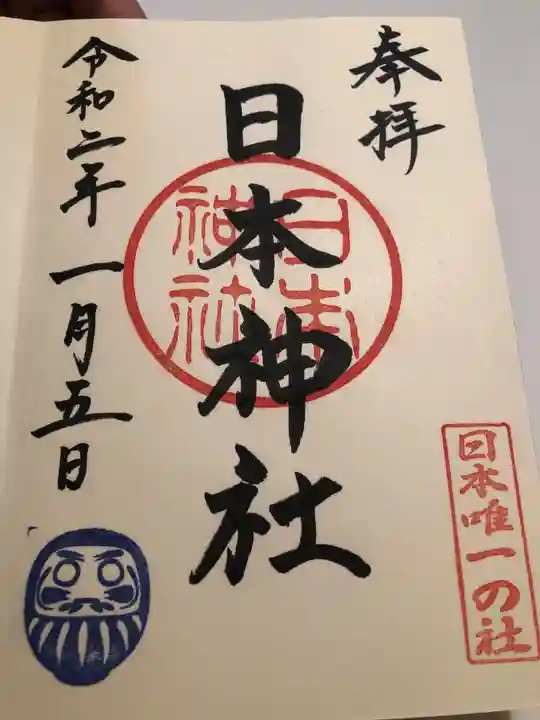 奉拝
日本唯一の社
日本神社
日本神社
令和二年一月五日